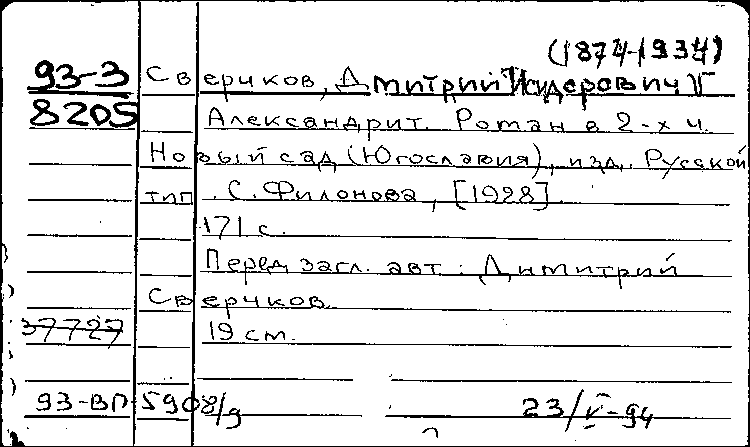 (1874-1934)
93-3 Сверчков, Дмитрий Исидорович
8205 Александрит. Роман в 2-х ч.
Новый сад (Югославия), изд. Русской
тип. С. Филонова, [1928].
171 с.
Перед загл. авт.: Димитрий
Сверчков.
37727 19 см.
93-ВП-5908/9 23/V-94